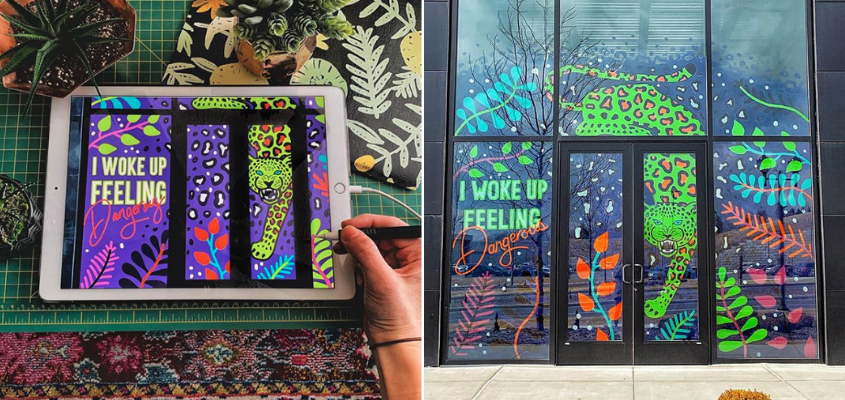 I WOKE UP
FEELING
Dangerous
I WOKE UP
FEELING
Dangerous